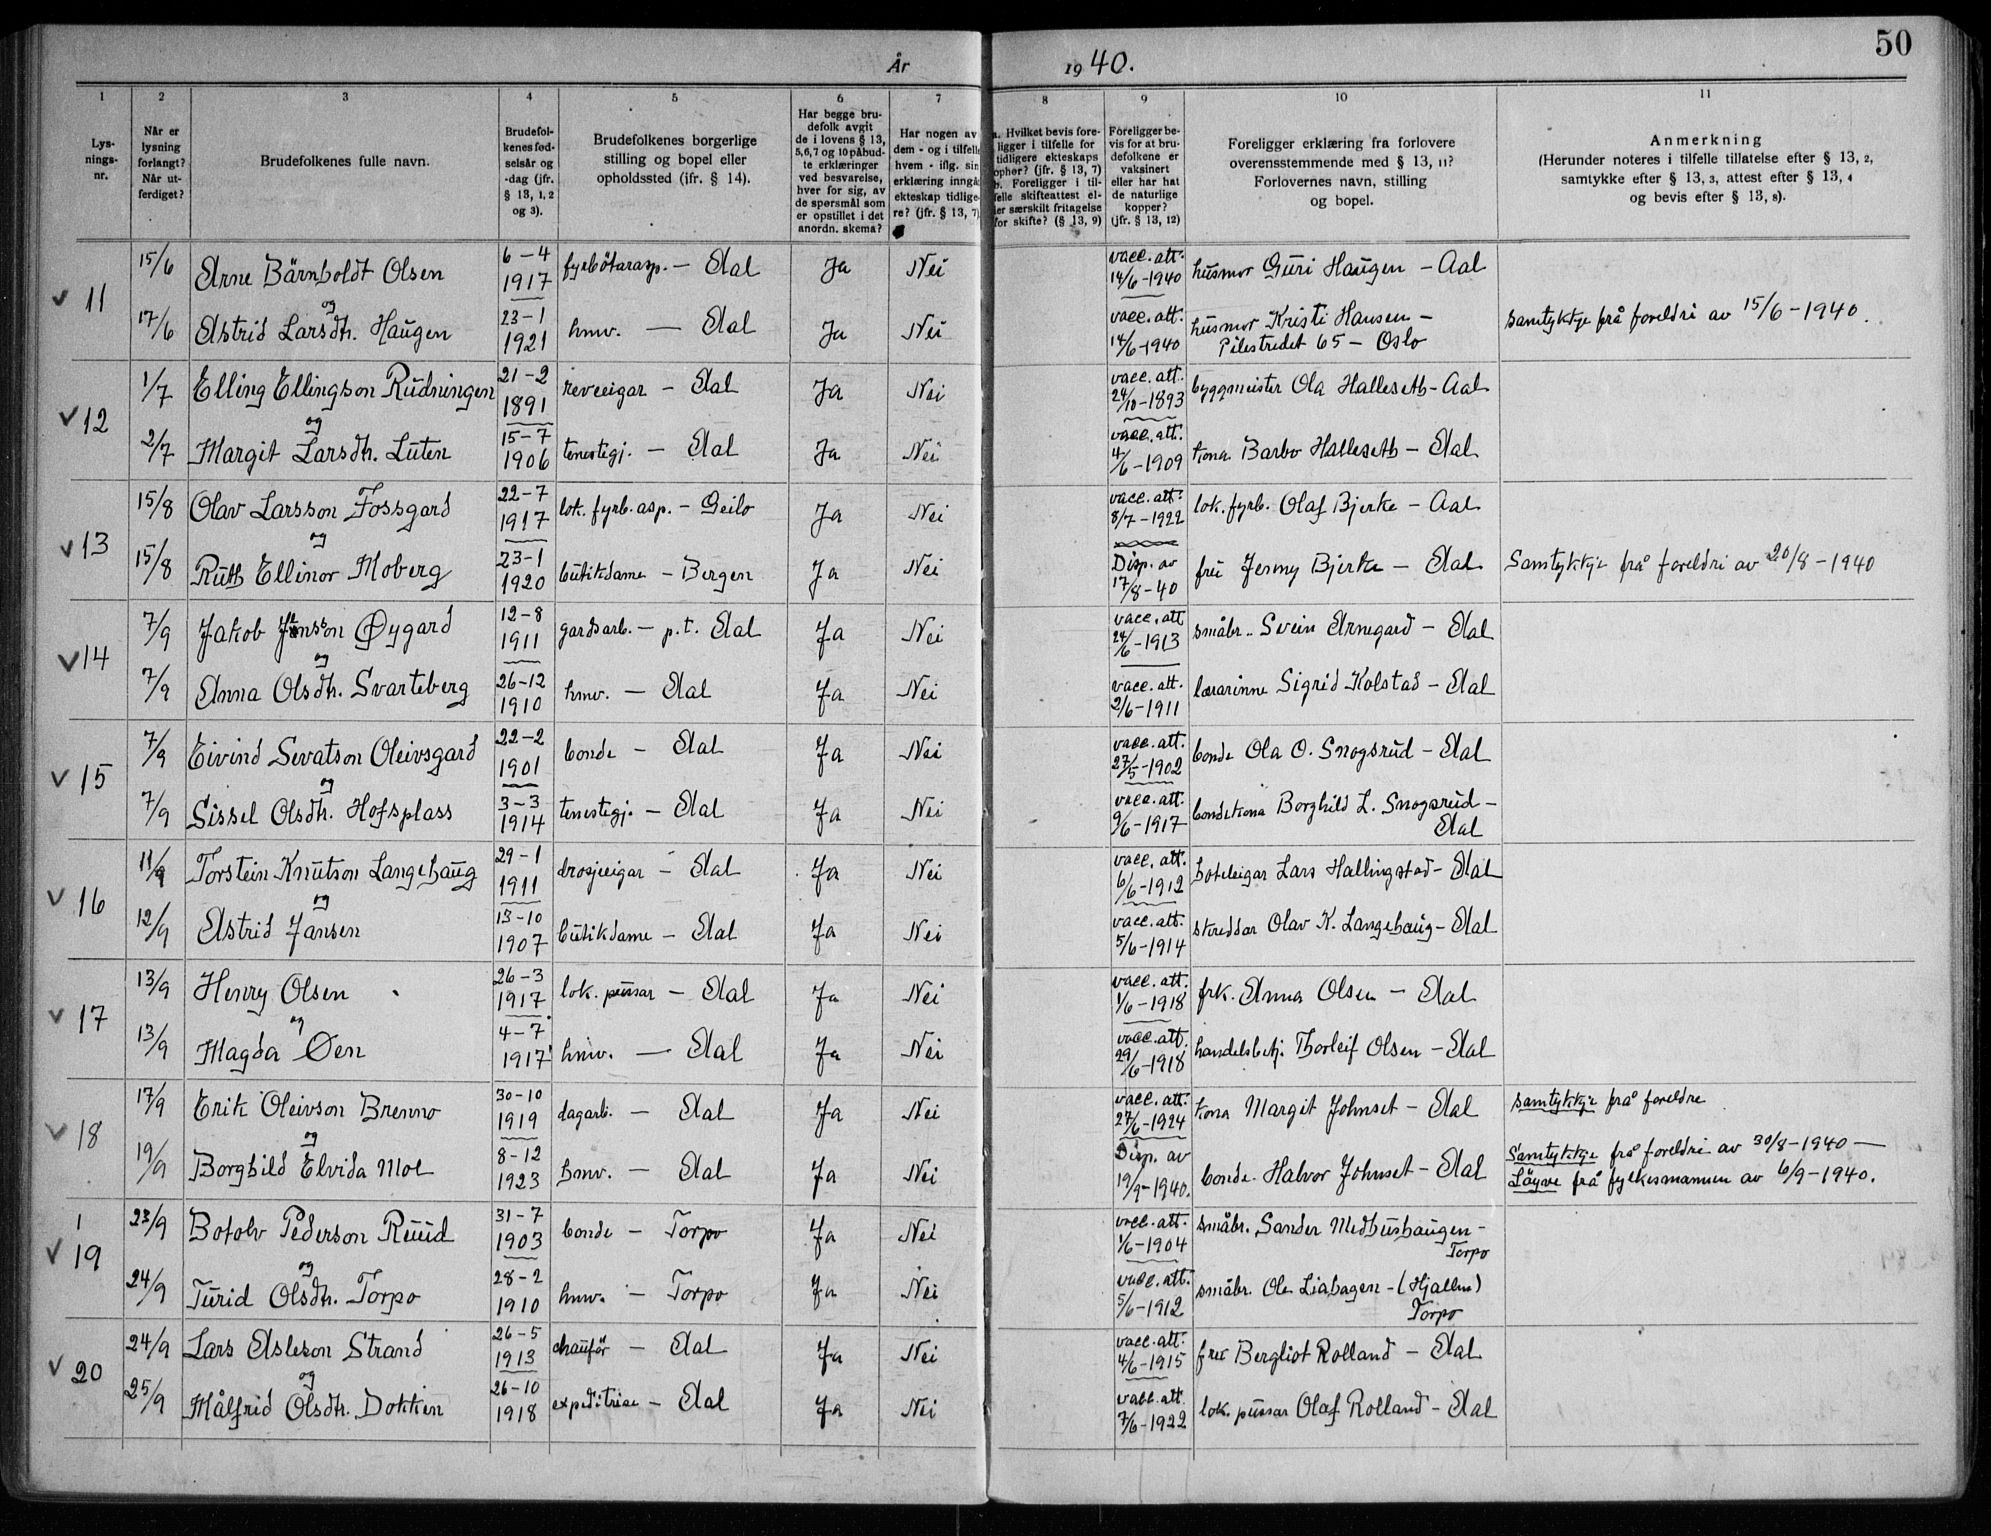 50
År 1940.
1 2 3 4 5 6 7 8 9 10 11
Lys-
nings-
nr.
Når er
lysning
forlangt?
Når ut-
ferdiget?
Brudefolkenes fulle navn.
Brudefol-
kenes fød-
selsår og
-dag (jfr.
§ 13, 1, 2
og 3).
Brudefolkenes borgerlige
stilling og bopel eller
opholdssted (jfr. § 14).
Har begge bru-
defolk avgit
de i lovens § 13,
5,6,7 og 10 påbud-
te erklæringer
ved besvarelse,
hver for sig, av
de spørsmål som
er opstillet i det
anordn. skema?
Har nogen av
dem - og i tilfelle
hvem - iflg. sin
erklæring inngåt
ekteskap tidlige-
re? (jfr. § 13, 7)
a. Hvilket bevis fore-
ligger i tilfelle for
tidligere ekteskaps
opher? (jfr. § 13, 7)
b. Foreligger i til-
felle skifteattest el-
ler særskilt fritagelse
for skifte? (§ 13, 9)
Foreligger be-
vis for at bru-
defolkene er
vaksinert
eller har hat
de naturlige
kopper?
(jfr. § 13, 12)
Foreligger erklæring fra forlovere
overensstemmende med § 13, 11?
Forlovernes navn, stilling
og bopel.
Anmerkning
(Herunder noteres i tilfelle tillatelse efter § 13, 2,
samtykke efter § 13, 3, attest efter § 13, 4
og bevis efter § 13, 8).
11 15/6 Arne Bärnholdt Olsen 6-4 1917 fyrbötarasp. - Aal Ja Nei vacc. att. 14/6-1940 husmor Guri Haugen - Aal
og
17/6 Astrid Larsdh. Haugen 23-1 1921 hmv. - Aal Ja Nei vacc. att. 14/6-1940 husmor Kristi Hansen - Pilestredet 65 - Oslo samtykkje frå foreldri av 15/6-1940.
12 1/7 Elling Ellingson Rudningen 21-2 1891 reveeigar - Aal Ja Nei vacc. att. 24/10-1893 byggmeister Ola Halleseth - Aal
og
2/7 Margit Larsdh. Luten 15-7 1906 tenestegj. - Aal Ja Nei vacc. att. 4/6-1909 kona Barbo Halleseth - Aal
13 15/8 Olav Larsson Fossgard 22-7 1917 lok. fyrb. asp. - Geilo Ja Nei vacc. att. 8/7-1922 lok. fyrb. Olaf Bjerke - Aal
og
15/8 Ruth Ellinor Moberg 23-1 1920 butikdame - Bergen Ja Nei Disp. av 17/8-40 fru Jenny Bjerke - Aal Samtykkje frå foreldri av 20/8-1940
14 7/9 Jakob Øygard 12-8 1911 gardsarb. - p.t. Aal Ja Nei vacc. att 24/6-1913 småbr. Svein Arnegard - Aal
og
7/9 Anna Olsdh. Svarteberg 26-12 1910 hmv. - Aal Ja Nei vacc. att. 2/6-1911 lærarinne Sigrid Kolstad - Aal
15 7/9 Eivind Sevatson Oleivsgard 22-2 1901 bonde - Aal Ja Nei vacc. att. 27/5-1902 bonde Ola O. Snogsrud - Aal
og
7/9 Sissel Olsdh. Hofsplass 3-3 1914 tenestegj. - Aal Ja Nei vacc. att. 9/6-1917 bondekona Borghild L. Snogsrud - Aal
16 11/9 Torstein Knutson Langehaug 29-1 1911 drosjeeigar - Aal Ja Nei vacc. att. 6/6-1912 hoteleigar Lars Hallingstad - Aal
og
12/9 Astrid Jansen 13-10 1907 butikdame - Aal Ja Nei vacc. att. 5/6-1914 skreddar Olav K. Langehaug - Aal
17 13/9 Henry Olsen 26-3 1917 lok. pussar - Aal Ja Nei vacc. att. 1/6-1918 frk. Anna Olsen - Aal
og
13/9 Magda Øen 4-7 1917 hmv. - Aal Ja Nei vacc. att. 29/6-1918 handelsbetj. Thorleif Olsen - Aal
18 17/9 Erik Oleivson Brenno 30-10 1919 dagarb. - Aal Ja Nei vacc. att. 27/6-1924 kona Margit Johnset - Aal samtykkje frå foreldre
og
19/9 Borghild Elvida Moe 8-12 1923 hmv. - Aal Ja Nei Disp. av 19/9-1940. bonde Halvor Johnset - Aal Samtykkje frå foreldri av 30/8-1940 - Löyve frå fylkesmannen av 6/9-1940.
19 23/9 Botolv Pederson Ruud 31-7 1903 bonde - Torpo Ja Nei vacc. att. 1/6-1904 småbr. Sander Medhushaugen - Torpo
og
24/9 Turid Olsdh. Torpo 28-2 1910 hmv. - Torpo Ja Nei vacc. att. 5/6-1912 småbr. Ole Liahagen - (Hjallen) Torpo
20 24/9 Lars Asleson Strand 26-5 1913 chauför - Aal Ja Nei vacc. att. 4/6-1915 fru Bergliot Rolland - Aal
og
25/9 Målfrid Olsdh. Dokken 26-10 1918 expeditrise - Aal Ja Nei vacc. att. 7/6-1922 lok. pussar Olaf Rolland - Aal